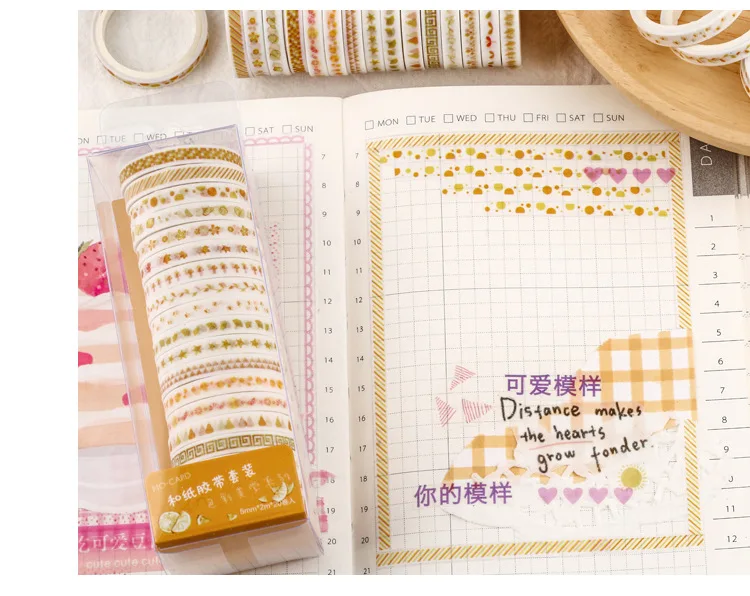 TUE WED
SAT SUN
MON TUE WED THU FRI SAT SUN
7
8
9
10
11
12
13
14
15
16
17
18
19
20
21
7
8
9
10
11
12
13
14
15
16
17
18
19
20
21
DA
1
2
3
4
5
6
7
8
9
10
11
12
可爱模样
Distance makes
the hearts
grow fonder.
你的模样
MO·CARD
和纸胶带套装
5mm*2m*20卷入
可爱
cute cute cut